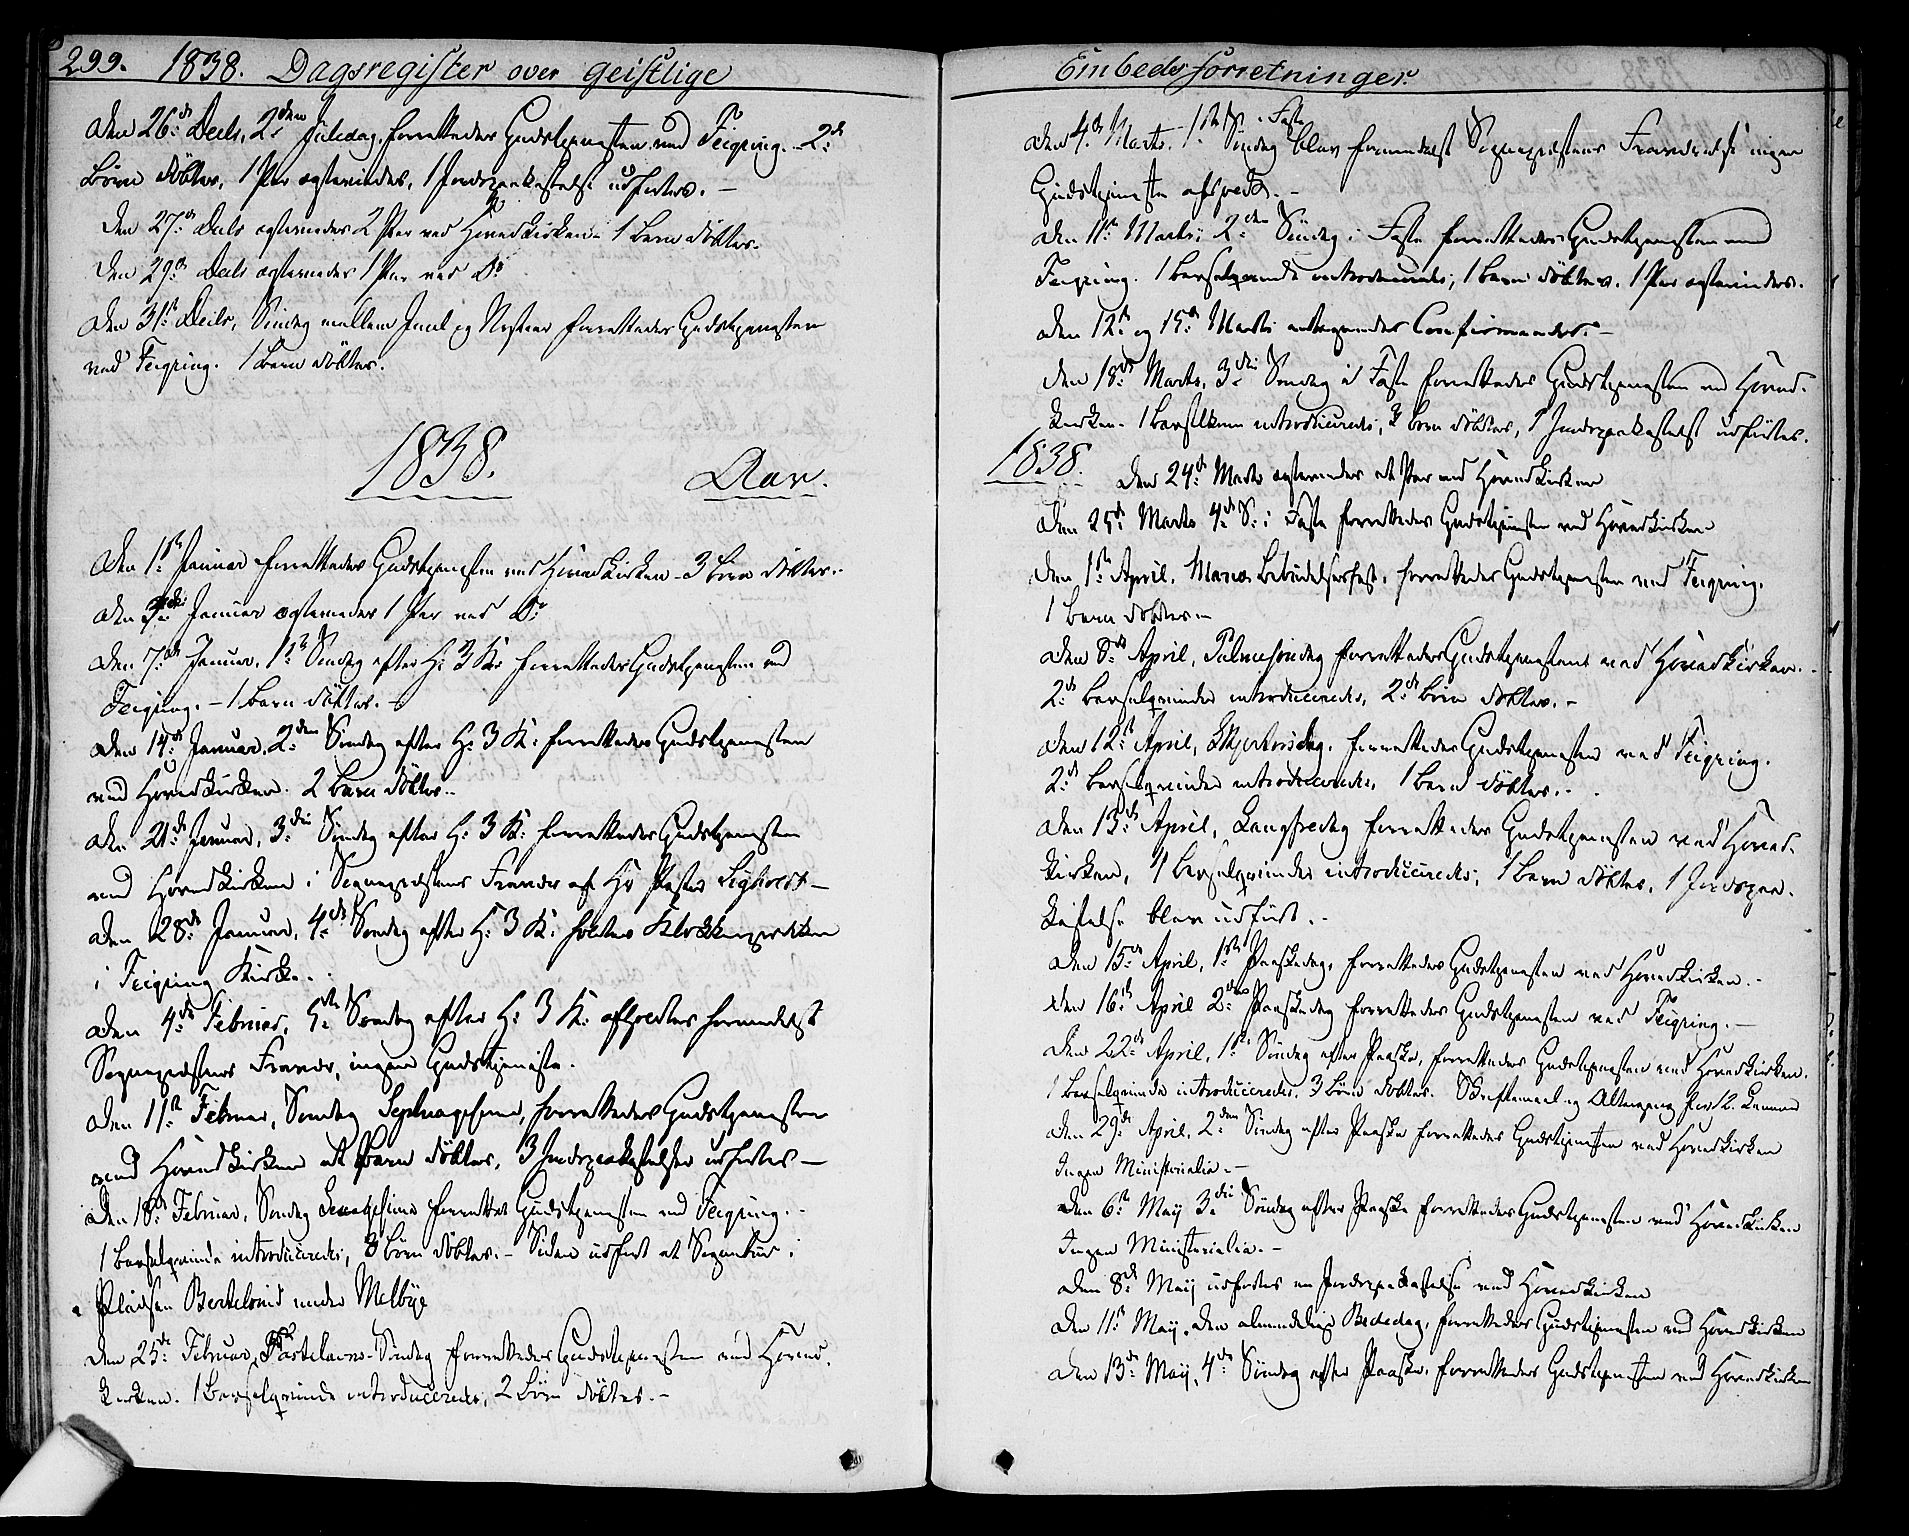 299. 1838. Dagsregister over geistlige
Den 26de Decbr, 2den Juledag, forrettedes Gudstjenesten ved Feiring. 2de
Børn døbtes, 1 Par egteviedes, 1 Jordpaakastelse udførtes. –
Den 27de Decbr egteviedes 2 Par ved Hovedkirken – 1 Barn døbtes.
Den 29de Decbr egteviedes 1 Par ved Do
Den 31te Decbr, Søndag mellem Juul og Nytaar forrettedes Gudstjenesten
ved Feiring. 1 Barn døbtes.
1838. Aar.
Den 1ste Januar forrettedes Gudstjenesten ved Hovedkirken – 3 Børn døbtes. –
Den Januar egteviedes 1 Par ved Do
Den 7de Januar, 1ste Søndag efter H: 3 K: forrettedes Gudstjenesten ved
Feiring. – 1 Barn døbtes. –
Den 14de Januar, 2den Søndag efter H: 3 K: forrettedes Gudstjenesten
ved Hovedkirken. 2 Børn døbtes. –
Den 21de Januar, 3die Søndag efter H: 3 K: forrettedes Gudstjenesten
ved Hovedkirken i Sognepræstens Fravær af Hr Pastor –
Den 28de Januar, 4de Søndag efter H: 3 K: holdtes Klokkerprækken
i Feiring Kirke. –
Den 4de Februar, 5te Søndag efter H: 3 K: afholdtes formedelst
Sognepræstens Fravær, ingen Gudstjeneste.
Den 11te Februar, Søndag Septuagesima, forrettedes Gudstjenesten
ved Hovedkirken et Barn døbtes, 3 Jordpaakastelser udførtes –
Den 18de Februar, Søndag Sexagesima forrettedes Gudstjenesten ved Feiring. –
1 Barselqvinde introduceredes, 3 Børn døbtes. – Siden udført et Sognebud i
Pladsen under Melbye
Den 25de Februar, Fastelavns-Søndag forrettedes Gudstjenesten ved Hoved-
kirken. 1 Barselqvinde introduceredes, 2 Børn døbtes. –
Embedsforretninger.
Den 4de Marts, 1ste S. i Faste
Søndag blev formedelst Sognepræstens Fraværelse ingen
Gudstjeneste afholdt. –
Den 11te Marts, 2den Søndag i Faste forrettedes Gudstjenesten ved
Feiring. 1 Barselqvinde introduceredes, 1 Barn døbtes. 1 Par egteviedes.
Den 12te og 15de Marts antegnedes Confirmander. –
Den 18de Marts, 3die Søndag i Faste forrettedes Gudstjenesten ved Hoved-
kirken. 1 Barselkone introduceredes, 2 Børn døbtes, 1 Jordpaakastelse udførtes.
1838.
Den 24de Marts egteviedes et Par ved Hovedkirken
Den 25de Marts 4de S: i Faste forrettedes Gudstjenesten ved Hovedkirken
Den 1ste April, Mariæ Bebudelsesfest, forrettedes Gudstjenesten ved Feiring.
1 Barn døbtes –
Den 8de April, Palmesøndag forrettedes Gudstjenesten ved Hovedkirken. –
2de Barselqvinder introduceredes, 2de Børn døbtes. –
Den 12te April, Skjertorsdag, forrettedes Gudstjenesten ved Feiring.
2de Barselqvinder introduceredes, 1 Barn døbtes. –
Den 13de April, Langfredag forrettedes Gudstjenesten ved Hoved-
kirken, 1 Barselqvinde introduceredes, 1 Barn døbtes, 1 Jordpaa-
kastelse blev udført. –
Den 15de April, 1ste Paaskedag, forrettedes Gudstjenesten ved Hovedkirken. –
Den 16de April 2den Paaskedag forrettedes Gudstjenesten ved Feiring. –
Den 22de April, 1ste Søndag efter Paaske, forrettedes Gudstjenesten ved Hovedkirken.
1 Barselqvinde introduceredes, 3 Børn døbtes. Skriftemaal og Altergang for 12
Den 29de April, 2den Søndag efter Paaske forrettedes Gudstjenesten ved Hovedkirken
Ingen Ministerialia. –
Den 6te May 3die Søndag efter Paaske forrettedes Gudstjenesten ved Hovedkirken
Ingen Ministerialia. –
Den 8de May udførtes en Jordpaakastelse ved Hovedkirken
Den 11te May, den almindelige Bededag, forrettedes Gudstjenesten ved Hovedkirken
Den 13de May, 4de Søndag efter Paaske, forrettedes Gudstjenesten ved Hovedkirken